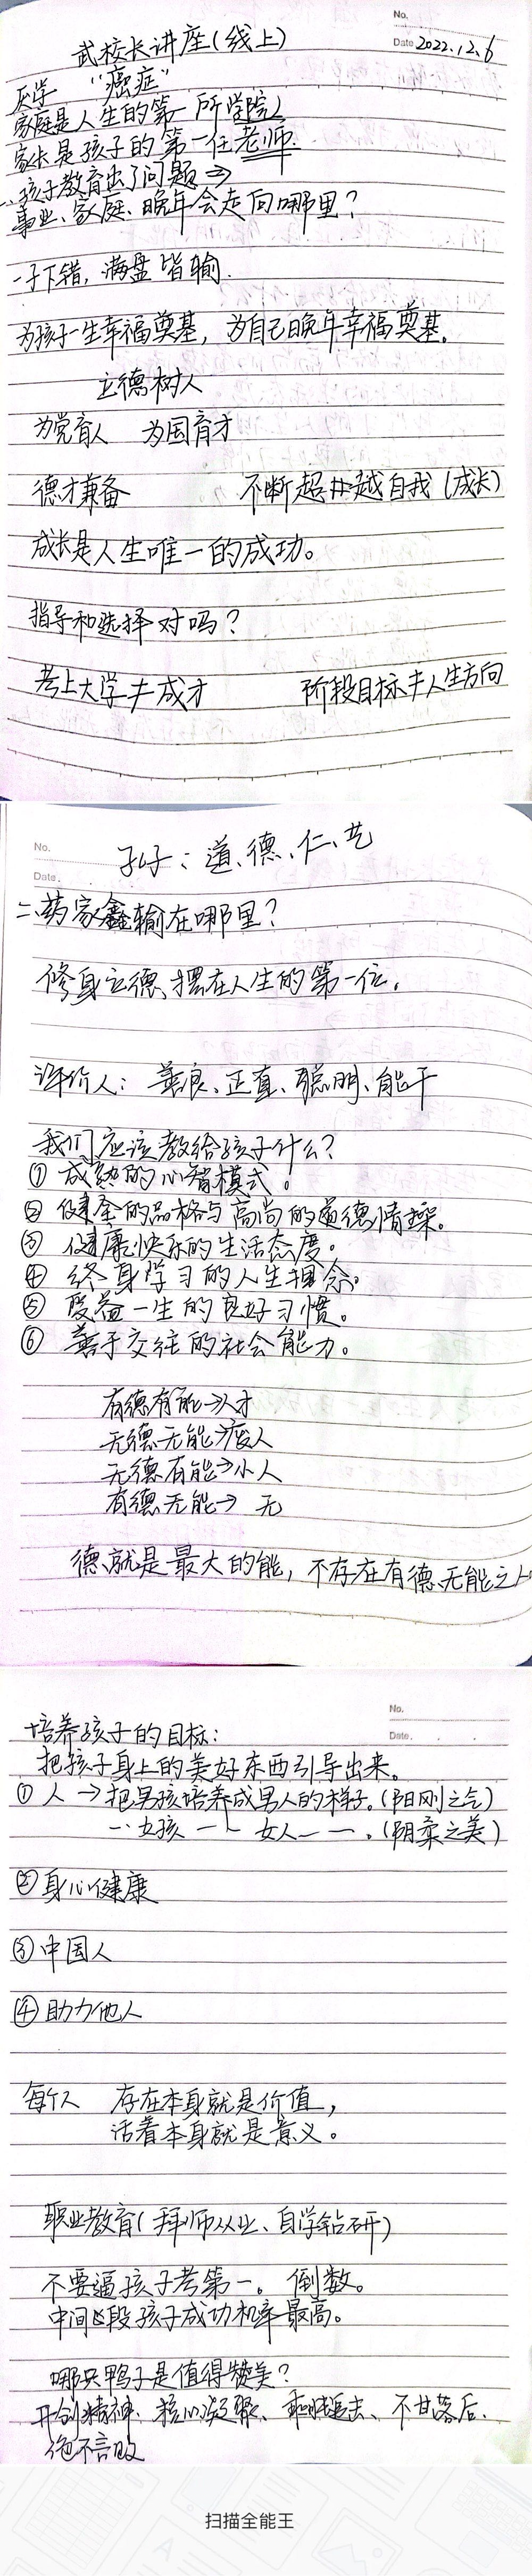 No.
武校长讲座(线上)
Date 2022.12.6
厌学 "癌症"
家庭是人生的第一所学院
家长是孩子的第一任老师.
一、孩子教育出了问题⇒
事业、家庭、晚年会走向哪里?
一子下错,满盘皆输.
为孩子一生幸福奠基,为自己晚年幸福奠基.
立德树人
为党育人 为国育才
德才兼备 不断超越自我(成长)
成长是人生唯一的成功。
指导和选择对吗?
考上大学≠成才 阶段目标≠人生方向
No.
孔子:道、德、仁、艺
Date.
二、药家鑫输在哪里?
修身立德、摆在人生的第一位.
评价人:善良、正直、聪明、能干
我们应该教给孩子什么?
① 成熟的心智模式。
② 健全的品格与高尚的道德情操。
③ 健康快乐的生活态度。
④ 终身学习的人生理念。
⑤ 受益一生的良好习惯。
⑥ 善于交往的社会能力。
有德有能→人才
无德无能→废人
无德有能→小人
有德无能→ 无
德就是最大的能,不存在有德无能之人
No.
培养孩子的目标:
Date.
把孩子身上的美好东西引导出来。
① 人→把男孩培养成男人的样子.(阳刚之气)
一·女孩 一一 女人一一.(阴柔之美)
② 身心健康
③ 中国人
④ 助力他人
每个人 存在本身就是价值,
活着本身就是意义。
职业教育(拜师从业、自学钻研)
不要逼孩子考第一。倒数。
中间段孩子成功机率最高。
哪只鸭子是值得赞美?
开创精神、核心凝聚、乘胜追击、不甘落后、
绝不言败
扫描全能王